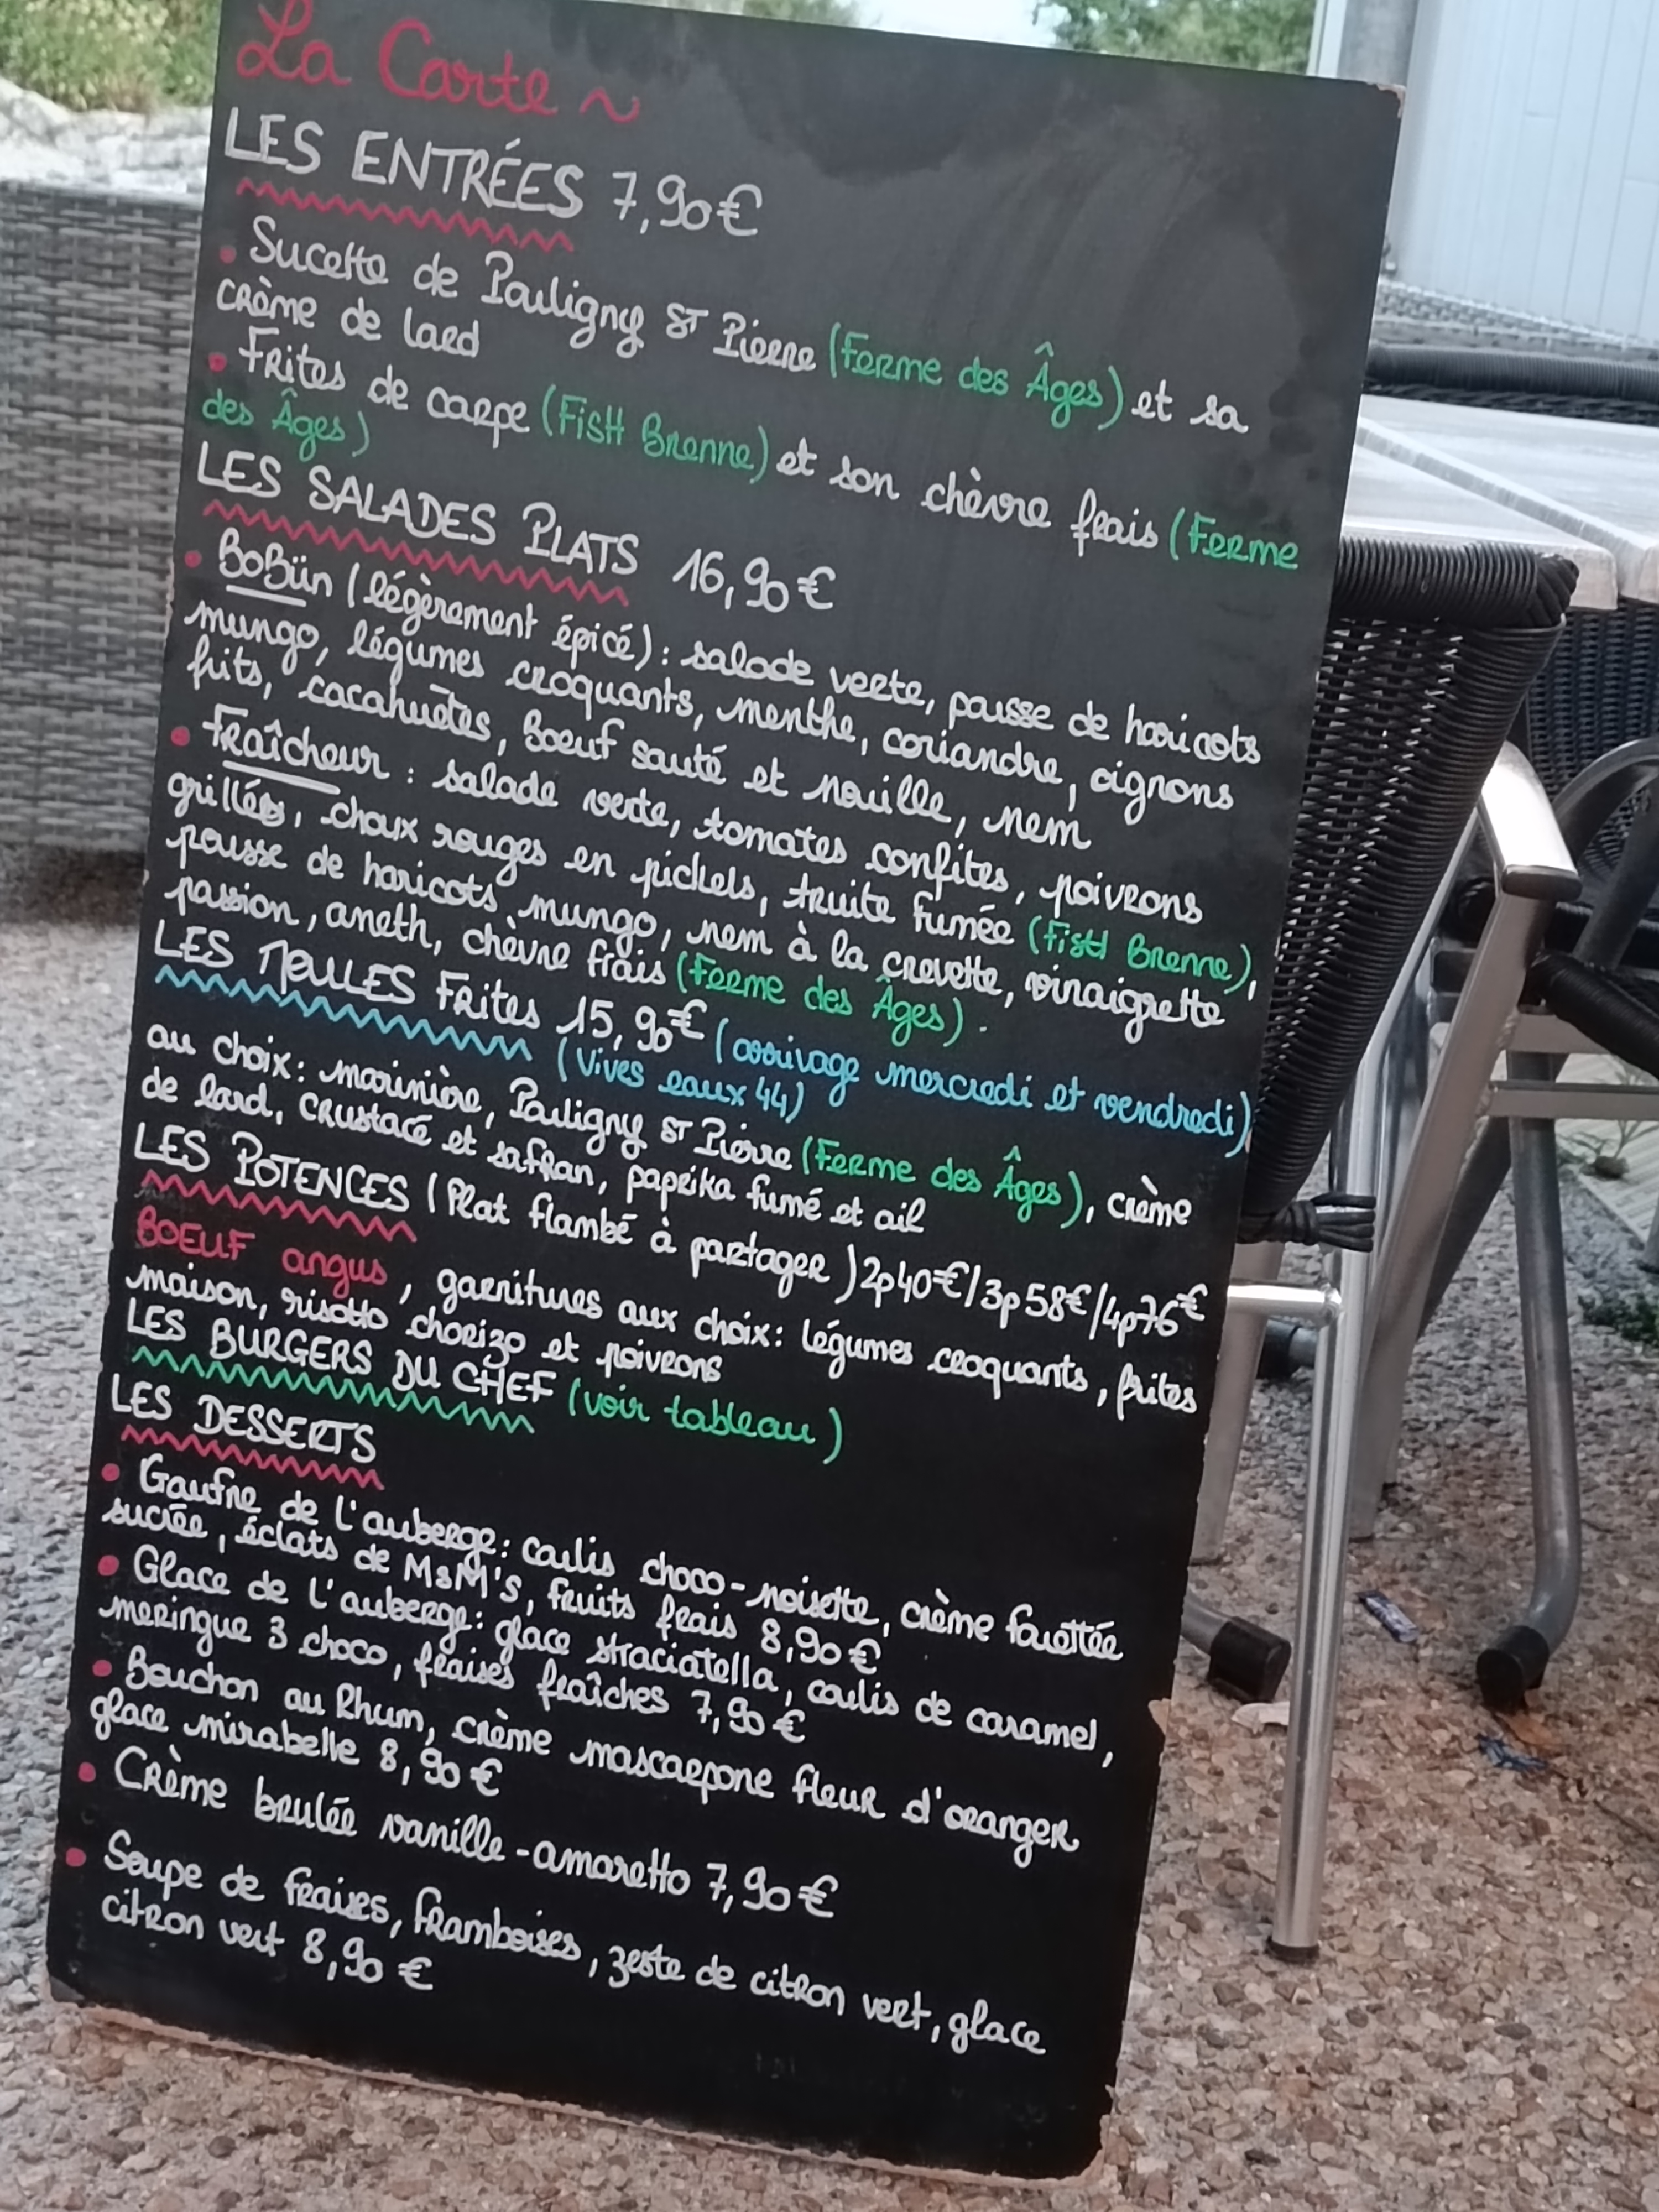 La Carte ~
LES ENTRÉES 7,90€
• Sucette de Pouligny ST Pierre (Ferme des Âges) et sa
crème de lard
• Frites de carpe (FisH Brenne) et son chèvre frais (Ferme
des Âges)
LES SALADES PLATS 16,90€
• BoBün (légèrement épicé) : salade verte, pousse de haricots
mungo, légumes croquants, menthe, coriandre, oignons
frits, cacahuètes, boeuf sauté et nouille, nem
• Fraîcheur : salade verte, tomates confites, poivrons
grillés, choux rouges en pickels, truite fumée (FisH Brenne),
pousse de haricots mungo, nem à la crevette, vinaigrette
passion, aneth, chèvre frais (Ferme des Âges).
LES MOULES Frites 15,90€ (arrivage mercredi et vendredi)
(Vives eaux 44)
au choix : marinière, Pouligny ST Pierre (Ferme des Âges), crème
de lard, crustacé et safran, paprika fumé et ail
LES POTENCES (Plat flambé à partager) 2p40€/3p58€/4p76€
BOEUF angus, garnitures aux choix : légumes croquants, frites
maison, risotto chorizo et poivrons
LES BURGERS DU CHEF (voir tableau)
LES DESSERTS
• Gaufre de l'auberge : coulis choco-noisette, crème fouettée
sucrée, éclats de M&M's, fruits frais 8,90€
• Glace de l'auberge : glace straciatella, coulis de caramel,
meringue 3 choco, fraises fraîches 7,90€
• Bouchon au Rhum, crème mascarpone fleur d'oranger
glace mirabelle 8,90€
• Crème brulée vanille-amaretto 7,90€
• Soupe de fraises, framboises, zeste de citron vert, glace
citron vert 8,90€